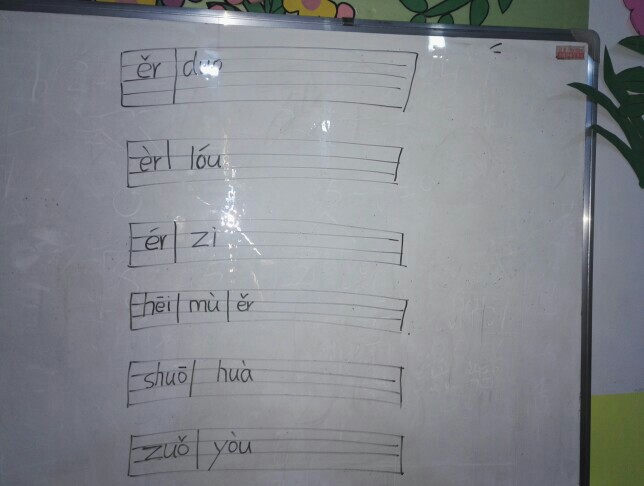 ěr duo
èr lóu
ér zi
hēi mù ěr
shuō huà
zuǒ yòu